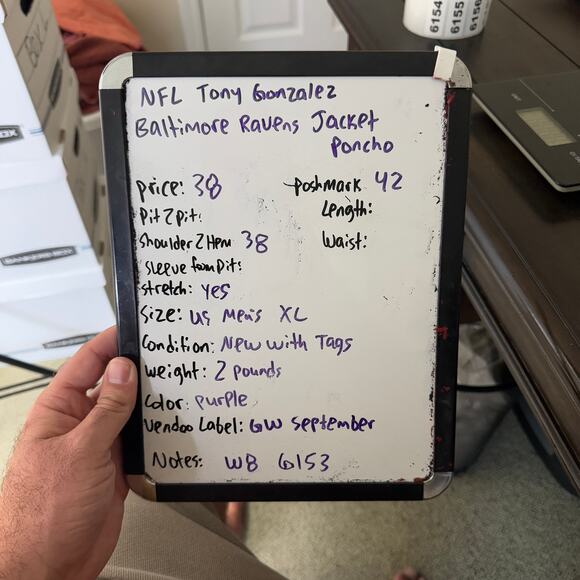 6154
6155
6156
NFL Tony Gonzalez
Baltimore Ravens Jacket
Poncho
price: 38
poshmark 42
Pit 2 Pit:
Length:
Shoulder 2 Hem: 38
Waist:
Sleeve from Pit:
stretch: yes
Size: US Men's XL
Condition: New with Tags
Weight: 2 pounds
Color: purple
Vendoo Label: GW September
Notes: W8 6153